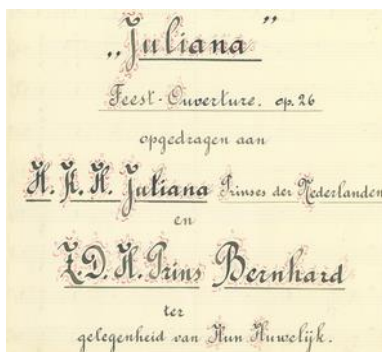 „Juliana”
Feest-Ouverture. op. 26
opgedragen aan
H. K. H. Juliana Prinses der Nederlanden
en
Z. D. H. Prins Bernhard
ter
gelegenheid van Hun Huwelijk.